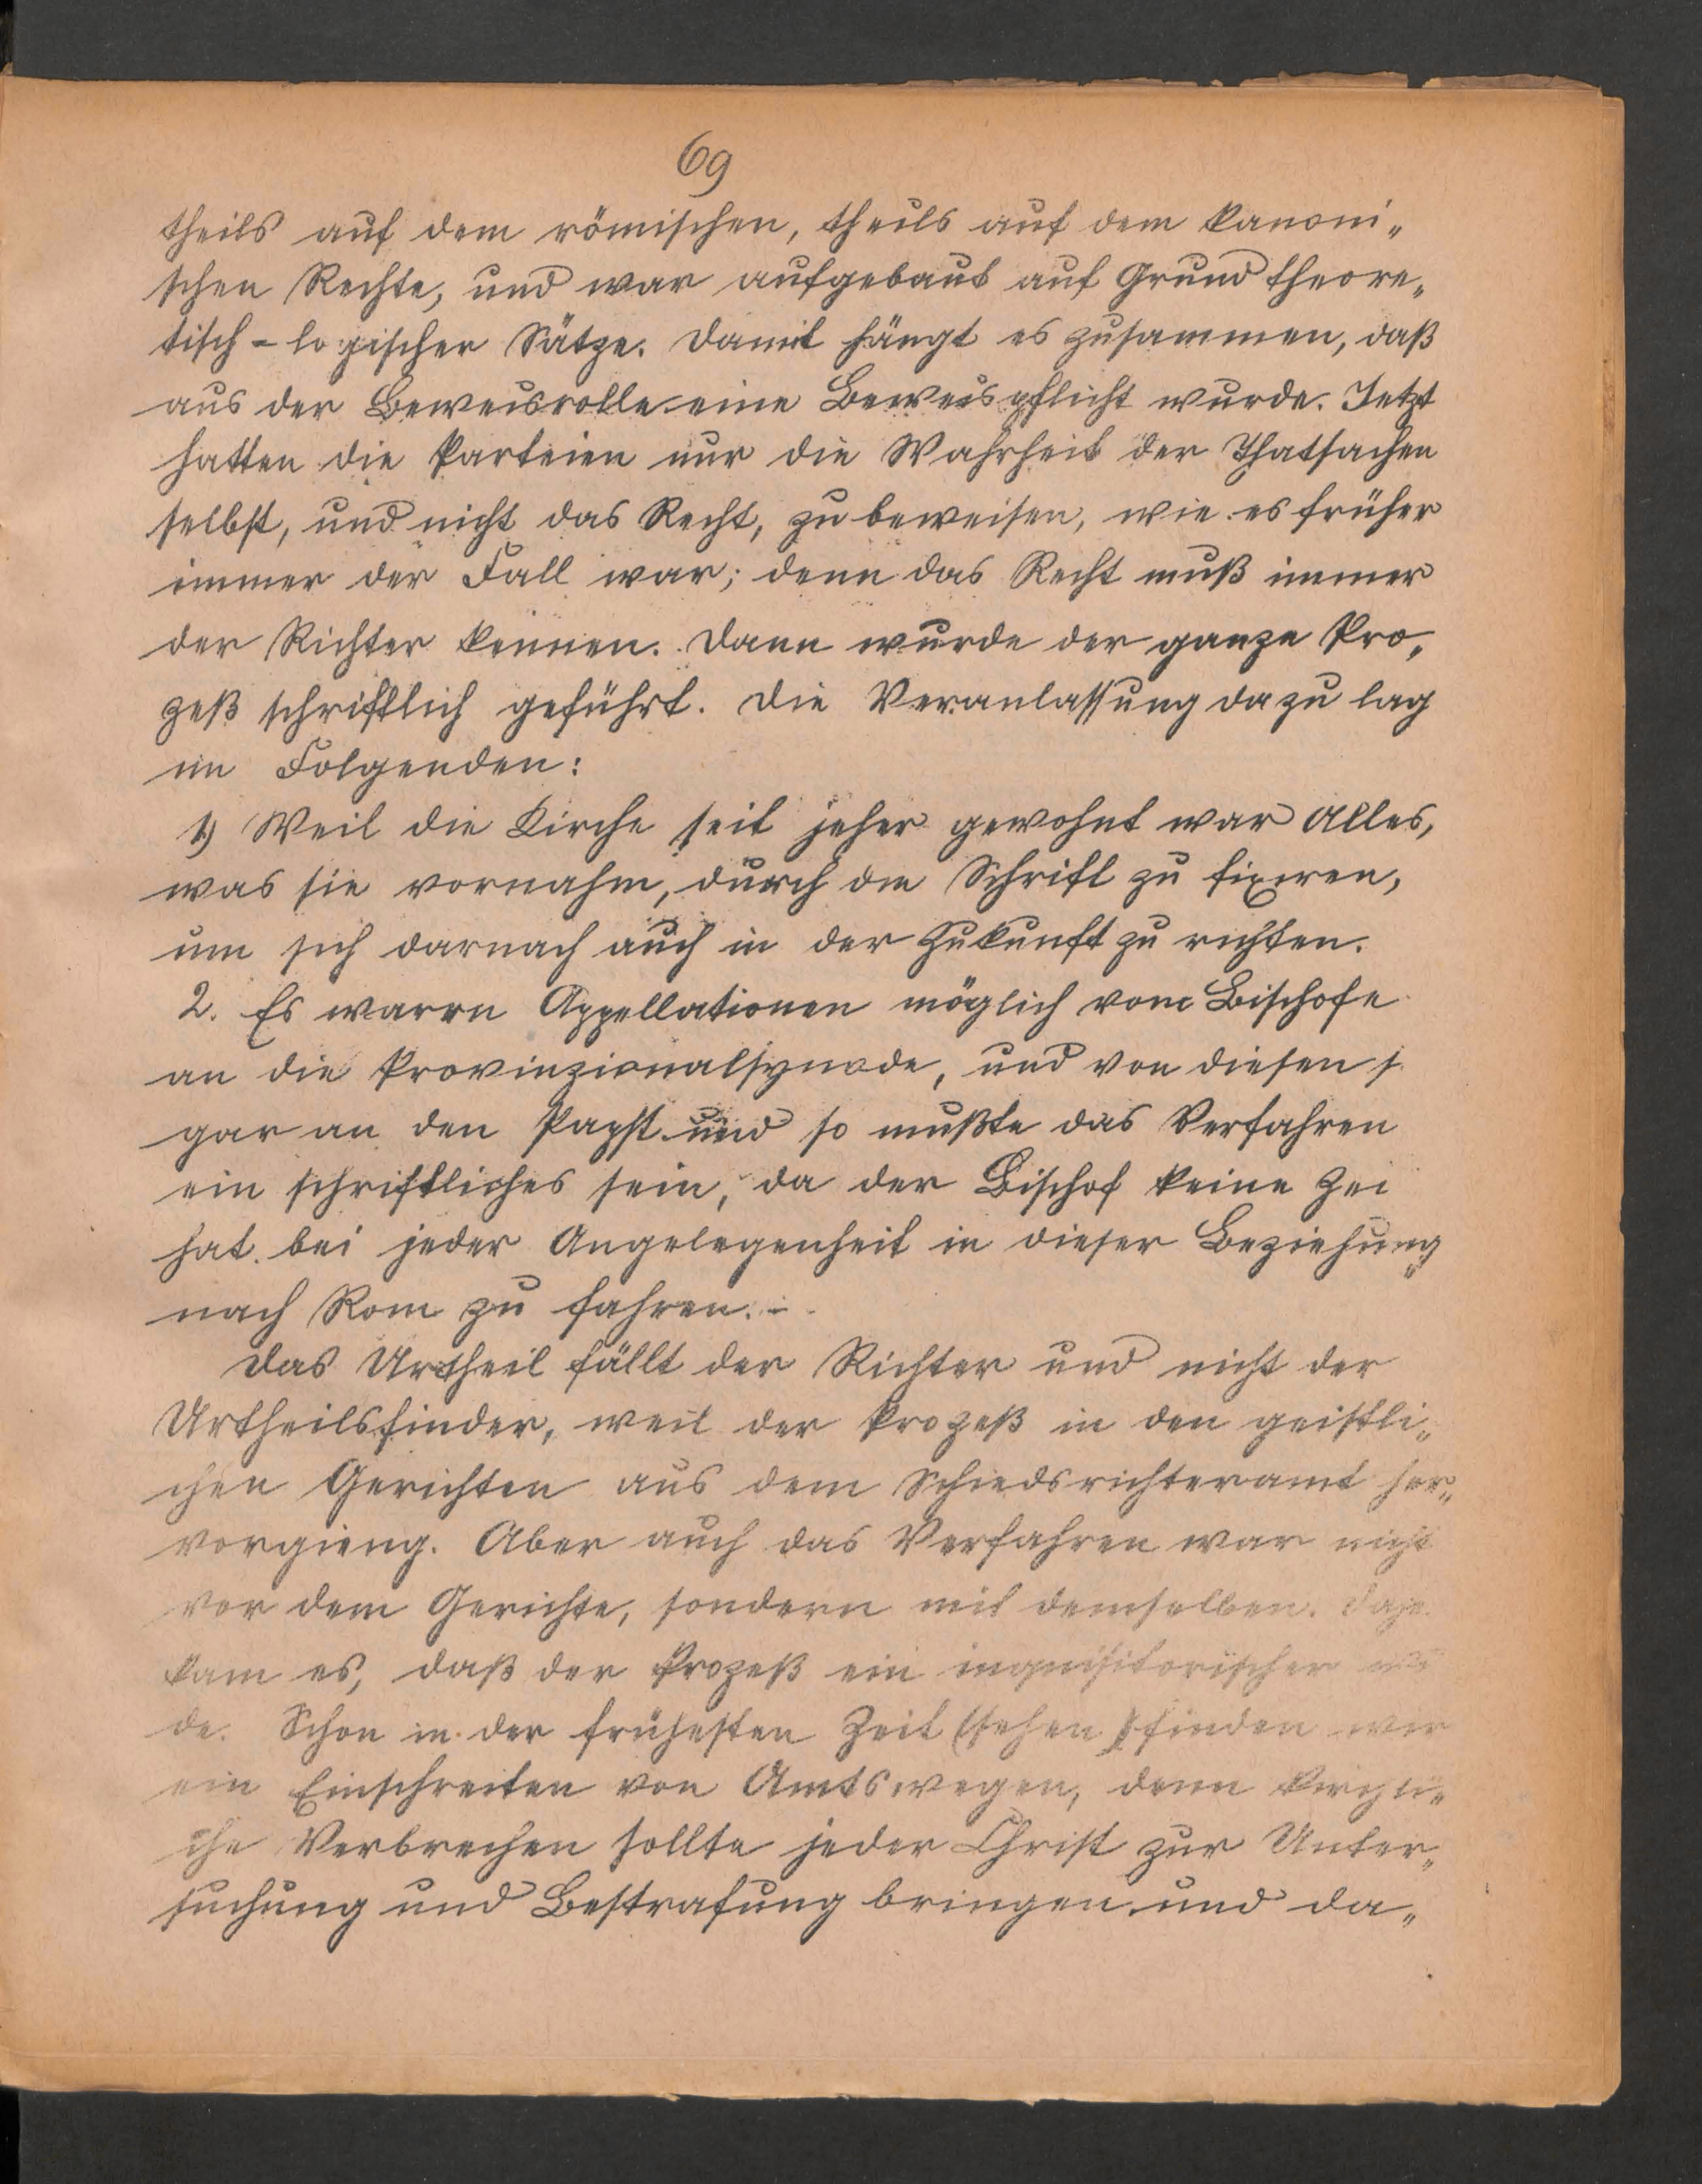 69
theils auf dem römischen, theils auf dem kanoni„
schen Rechte, und war aufgebaut auf Grund theore„
tisch-logischer Sätze. Damit hängt es zusammen, daß
aus der Beweisrolle eine Beweispflicht wurde. Jetzt
hatten die Parteien nur die Wahrheit der Thatsachen
selbst, und nicht das Recht, zu beweisen, wie es früher
immer der Fall war; denn das Recht muß immer
der Richter kennen. Dann wurde der ganze Pro„
zeß schriftlich geführt. Die Veranlassung dazu lag
im Folgenden:
1) Weil die Kirche seit jeher gewohnt war Alles,
was sie vornahm, durch die Schrift zu fixiren,
um sich darnach auch in der Zukunft zu richten.
2. Es waren Appellationen möglich vom Bischofe
an die Provinzionalsynode, und von diesen s
gar an den Papst und so mußte das Verfahren
ein schriftliches sein, da der Bischof keine Zei
hat bei jeder Angelegenheit in dieser Beziehung
nach Rom zu fahren. -
Das Urtheil fällt der Richter und nicht der
Urtheilsfinder, weil der Prozeß in den geistli„
chen Gerichten aus dem Schiedsrichteramt her„
vorgieng. Aber auch das Verfahren war nicht
vor dem Gerichte, sondern mit demselben. Dahe
kam es, daß der Prozeß ein inquisitorischer wu
de. Schon in der frühesten Zeit (sehen) finden wir
ein Einschreiten von Amtswegen, denn kirchli„
che Verbrechen sollte jeder Christ zur Unter„
suchung und Bestrafung bringen und da„